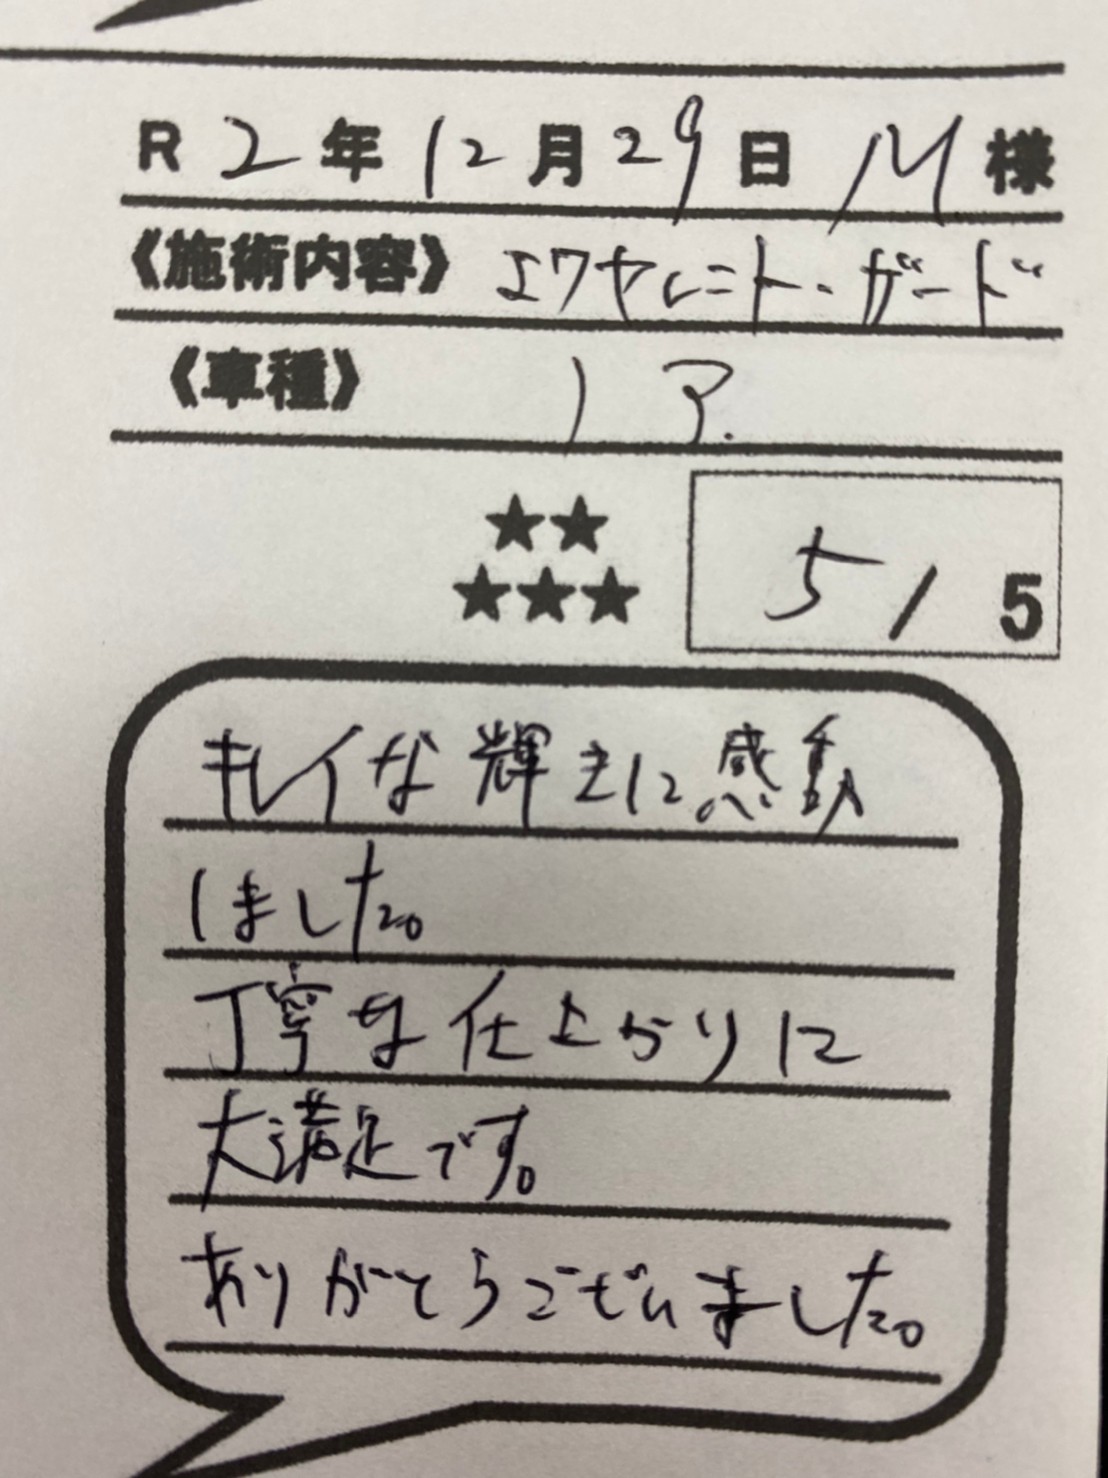 R 2年12月29日 M様
《施術内容》 エクセレント・ガード
《車種》 ノア.
★★
★★★
5/5
キレイな輝きに感動
しました。
丁寧な仕上がりに
大満足です。
ありがとうございました。